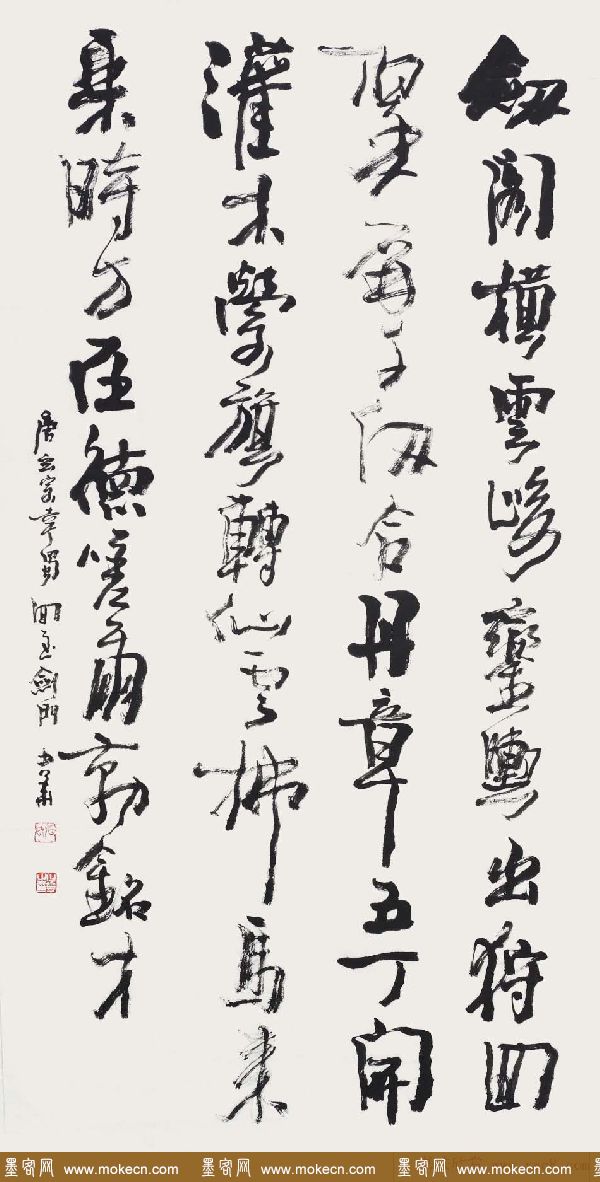 劍閣橫雲峻鑾輿出狩回
翠屏千仞合丹章五丁開
灌木縈旗轉仙雲拂馬來
乘時方在德嗟爾勒銘才
唐玄宗幸蜀回至劍門
墨客网 www.mokecn.com 墨客网 www.mokecn.com 墨客网 www.mokecn.com